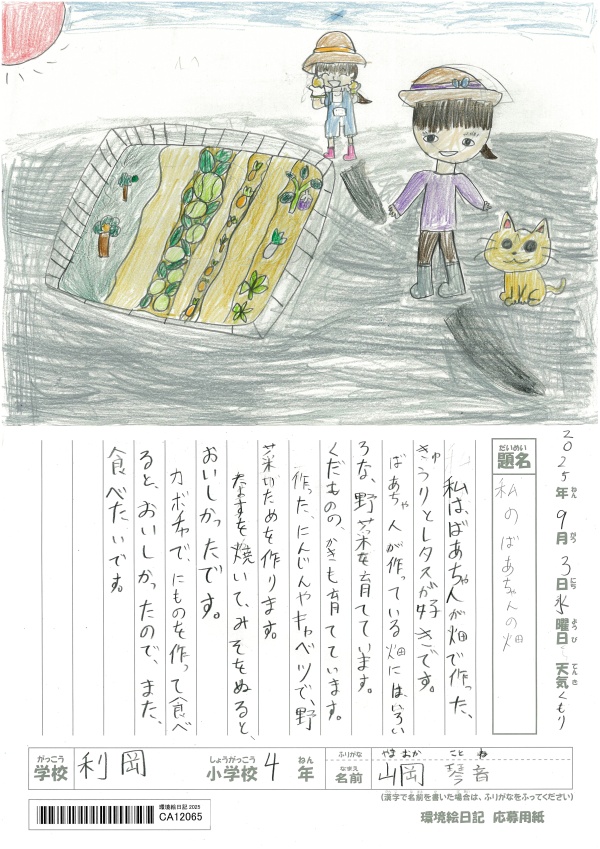 2025年9月3日水曜日 天気くもり
ねん がつ にち ようび てんき
だいめい
題名
私のばあちゃんの畑
私は、ばあちゃんが畑で作った、
きゅうりとレタスが好きです。
ばあちゃんが作っている畑には、いろい
ろな、野菜を育てています。
くだもの、かきも育てています。
作った、にんじんやキャベツで、野
菜いためを作ります。
なすを焼いて、みそをぬると、
おいしかったです。
カボチャで、にものを作って食べ
ると、おいしかったので、また、
食べたいです。
がっこう しょうがっこう ねん ふりがな やまおか ことね
学校 利岡 小学校 4年 なまえ 名前 山岡 琴音
(漢字で名前を書いた場合は、ふりがなをふってください)
環境絵日記 2025
CA12065
環境絵日記 応募用紙